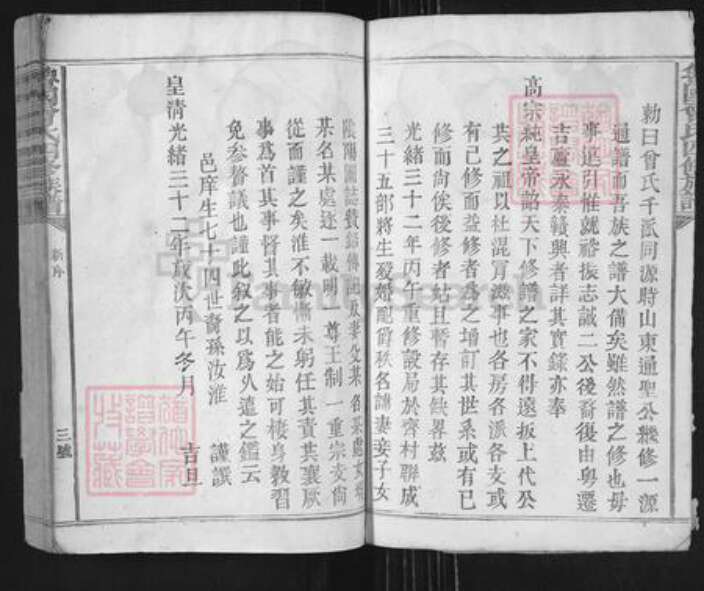 勅曰曾氏千派同源時山東通聖公繼修一源
通譜而吾族之譜大備矣雖然譜之修也毋
事遠引惟就裕振志誠二公後裔復由粵遷
吉廬永泰贛興者詳其實錄亦奉
高宗純皇帝詔天下修譜之家不得遠扳上代公
共之祖以杜混冐滋事也各房各派各支或
有已修而益修者為之增訂其世系或有已
修而尚俟後修者姑且暫存其缺畧茲
光緒三十二年丙午重修設局於齊村聯成
三十五部將生歿婚配爵秩名諱妻妾子女
陰陽圖誌贊銘傳
某名某處逐一載明一尊王制一重宗支尚
從而謹之矣淮不敏慚未躬任其責其襄厥
事為首其事督其事者能之始可棲身教習
免參贅議也謹此叙之以為久遠之鑑云
邑庠生七十四世裔孫汝淮 謹譔
皇清光緒三十二年歲次丙午冬月 吉旦
魯國曾氏四修族譜
新序
三號
FamilySearch